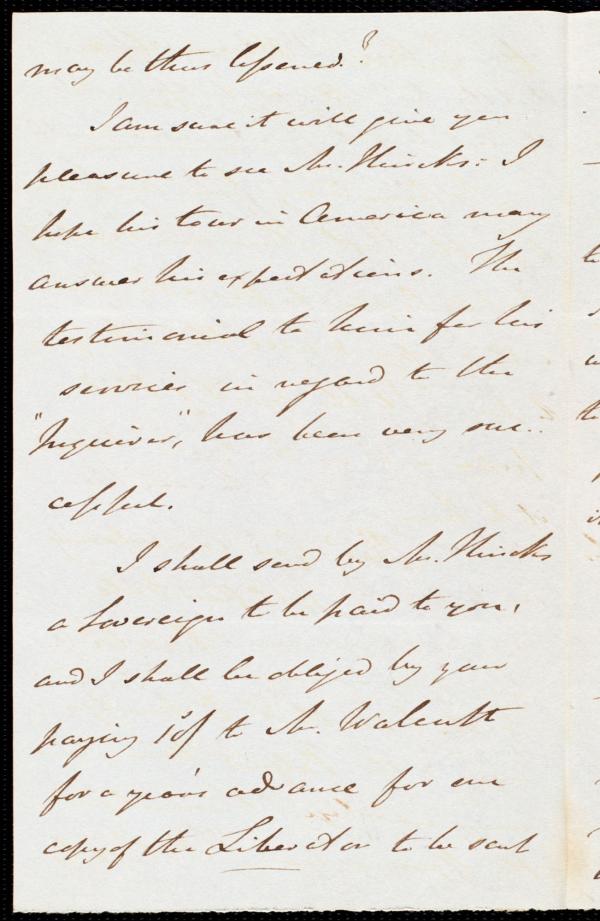 may be thus lessened?
I am sure it will give you
pleasure to see Mr. Hincks: I
hope his tour in America may
answer his expectations. The
testimonial to him for his
services in regard to the
"Inquirer", has been very suc-
cessful.
I shall send by Mr. Hincks
a Sovereign to be paid to you,
and I shall be obliged by your
paying to Mr. Walcutt
for a year's advance for one
copy of the Liberator to be sent